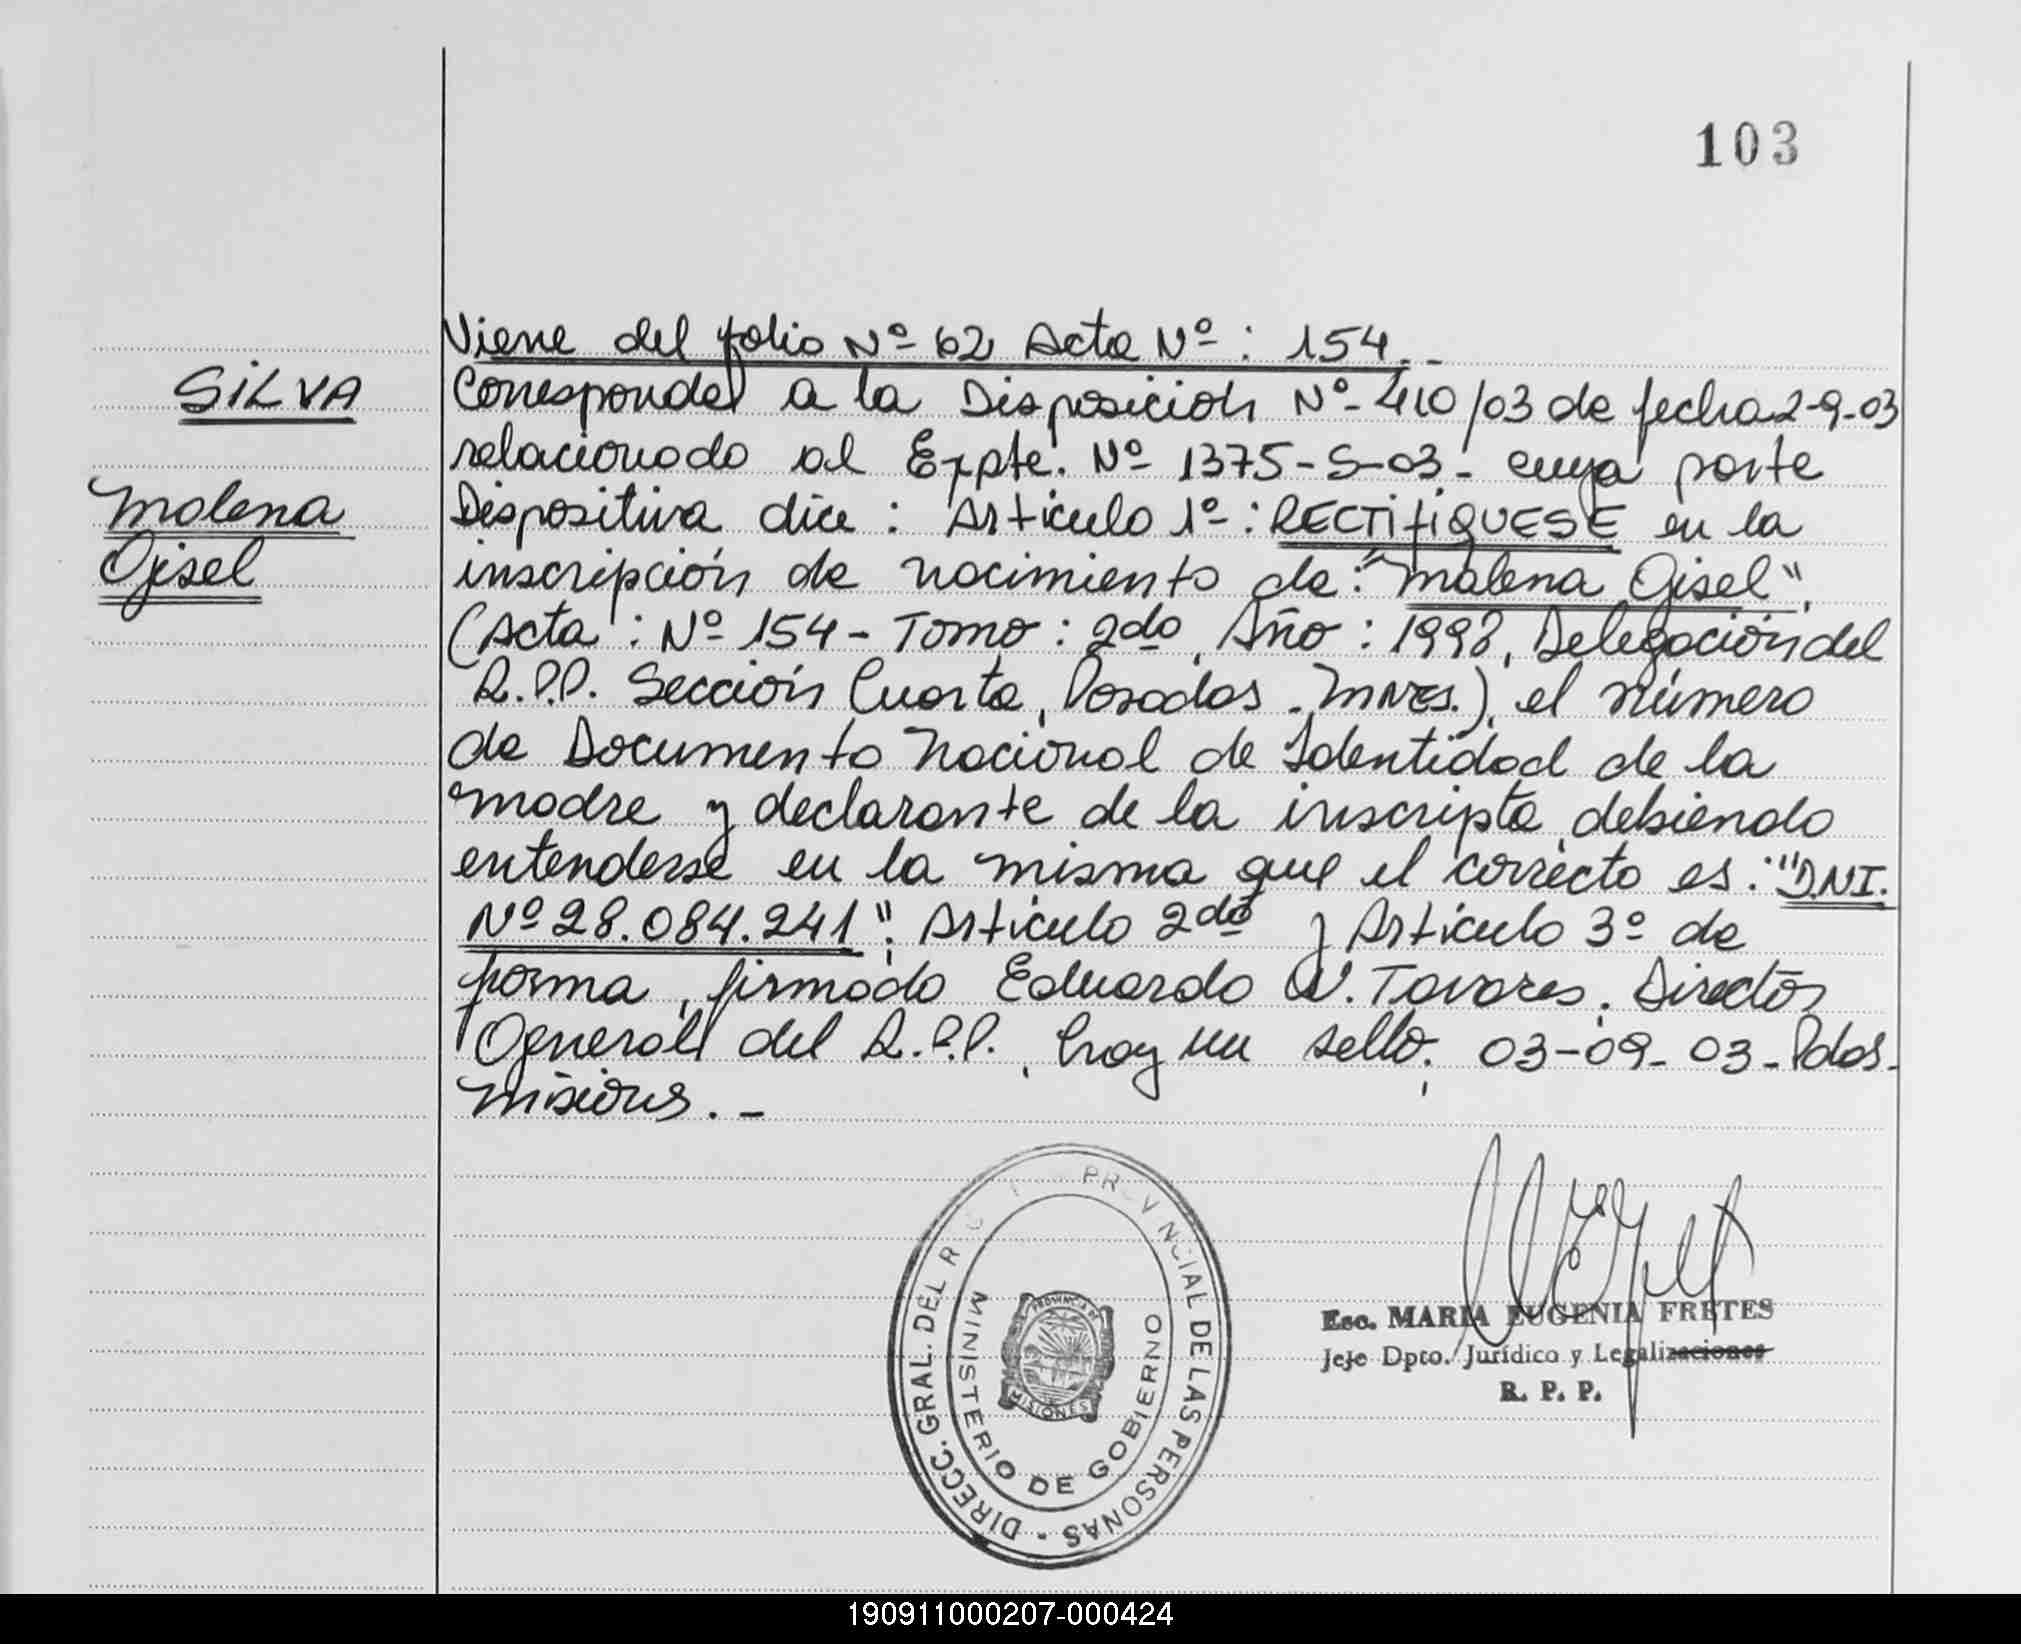 103
Viene del folio Nº 62 Acta Nº : 154.-
SILVA
Malena
Gisel
Corresponde a la Disposición Nº-410/03 de fecha 2-9-03
relacionado al Expte. Nº 1375-S-03- cuya parte
Dispositiva dice : Articulo 1º : RECTIFIQUESE en la
inscripción de nacimiento de: "Malena Gisel",
(Acta : Nº 154- Tomo : 2do, Año : 1998, Delegación del
R.P.P. Sección Cuarta, Posadas - Mnes.), el número
de Documento Nacional de Identidad de la
madre y declarante de la inscripta, debiendo
entenderse en la misma que el correcto es: "D.N.I.
Nº 28.084.241". Articulo 2do y Articulo 3º de
forma, firmado Eduardo W. Tavares. Director
General del R.P.P., hay un sello. 03-09-03- Pdas.
Misiones.-
DIRECC. GRAL. DEL PROVINCIAL DE LAS PERSONAS -
MINISTERIO DE GOBIERNO
PROVINCIA DE
MISIONES
Esc. MARIA EUGENIA FRETES
Jefe Dpto. Jurídico y Legalizaciones
R. P. P.
190911000207-000424